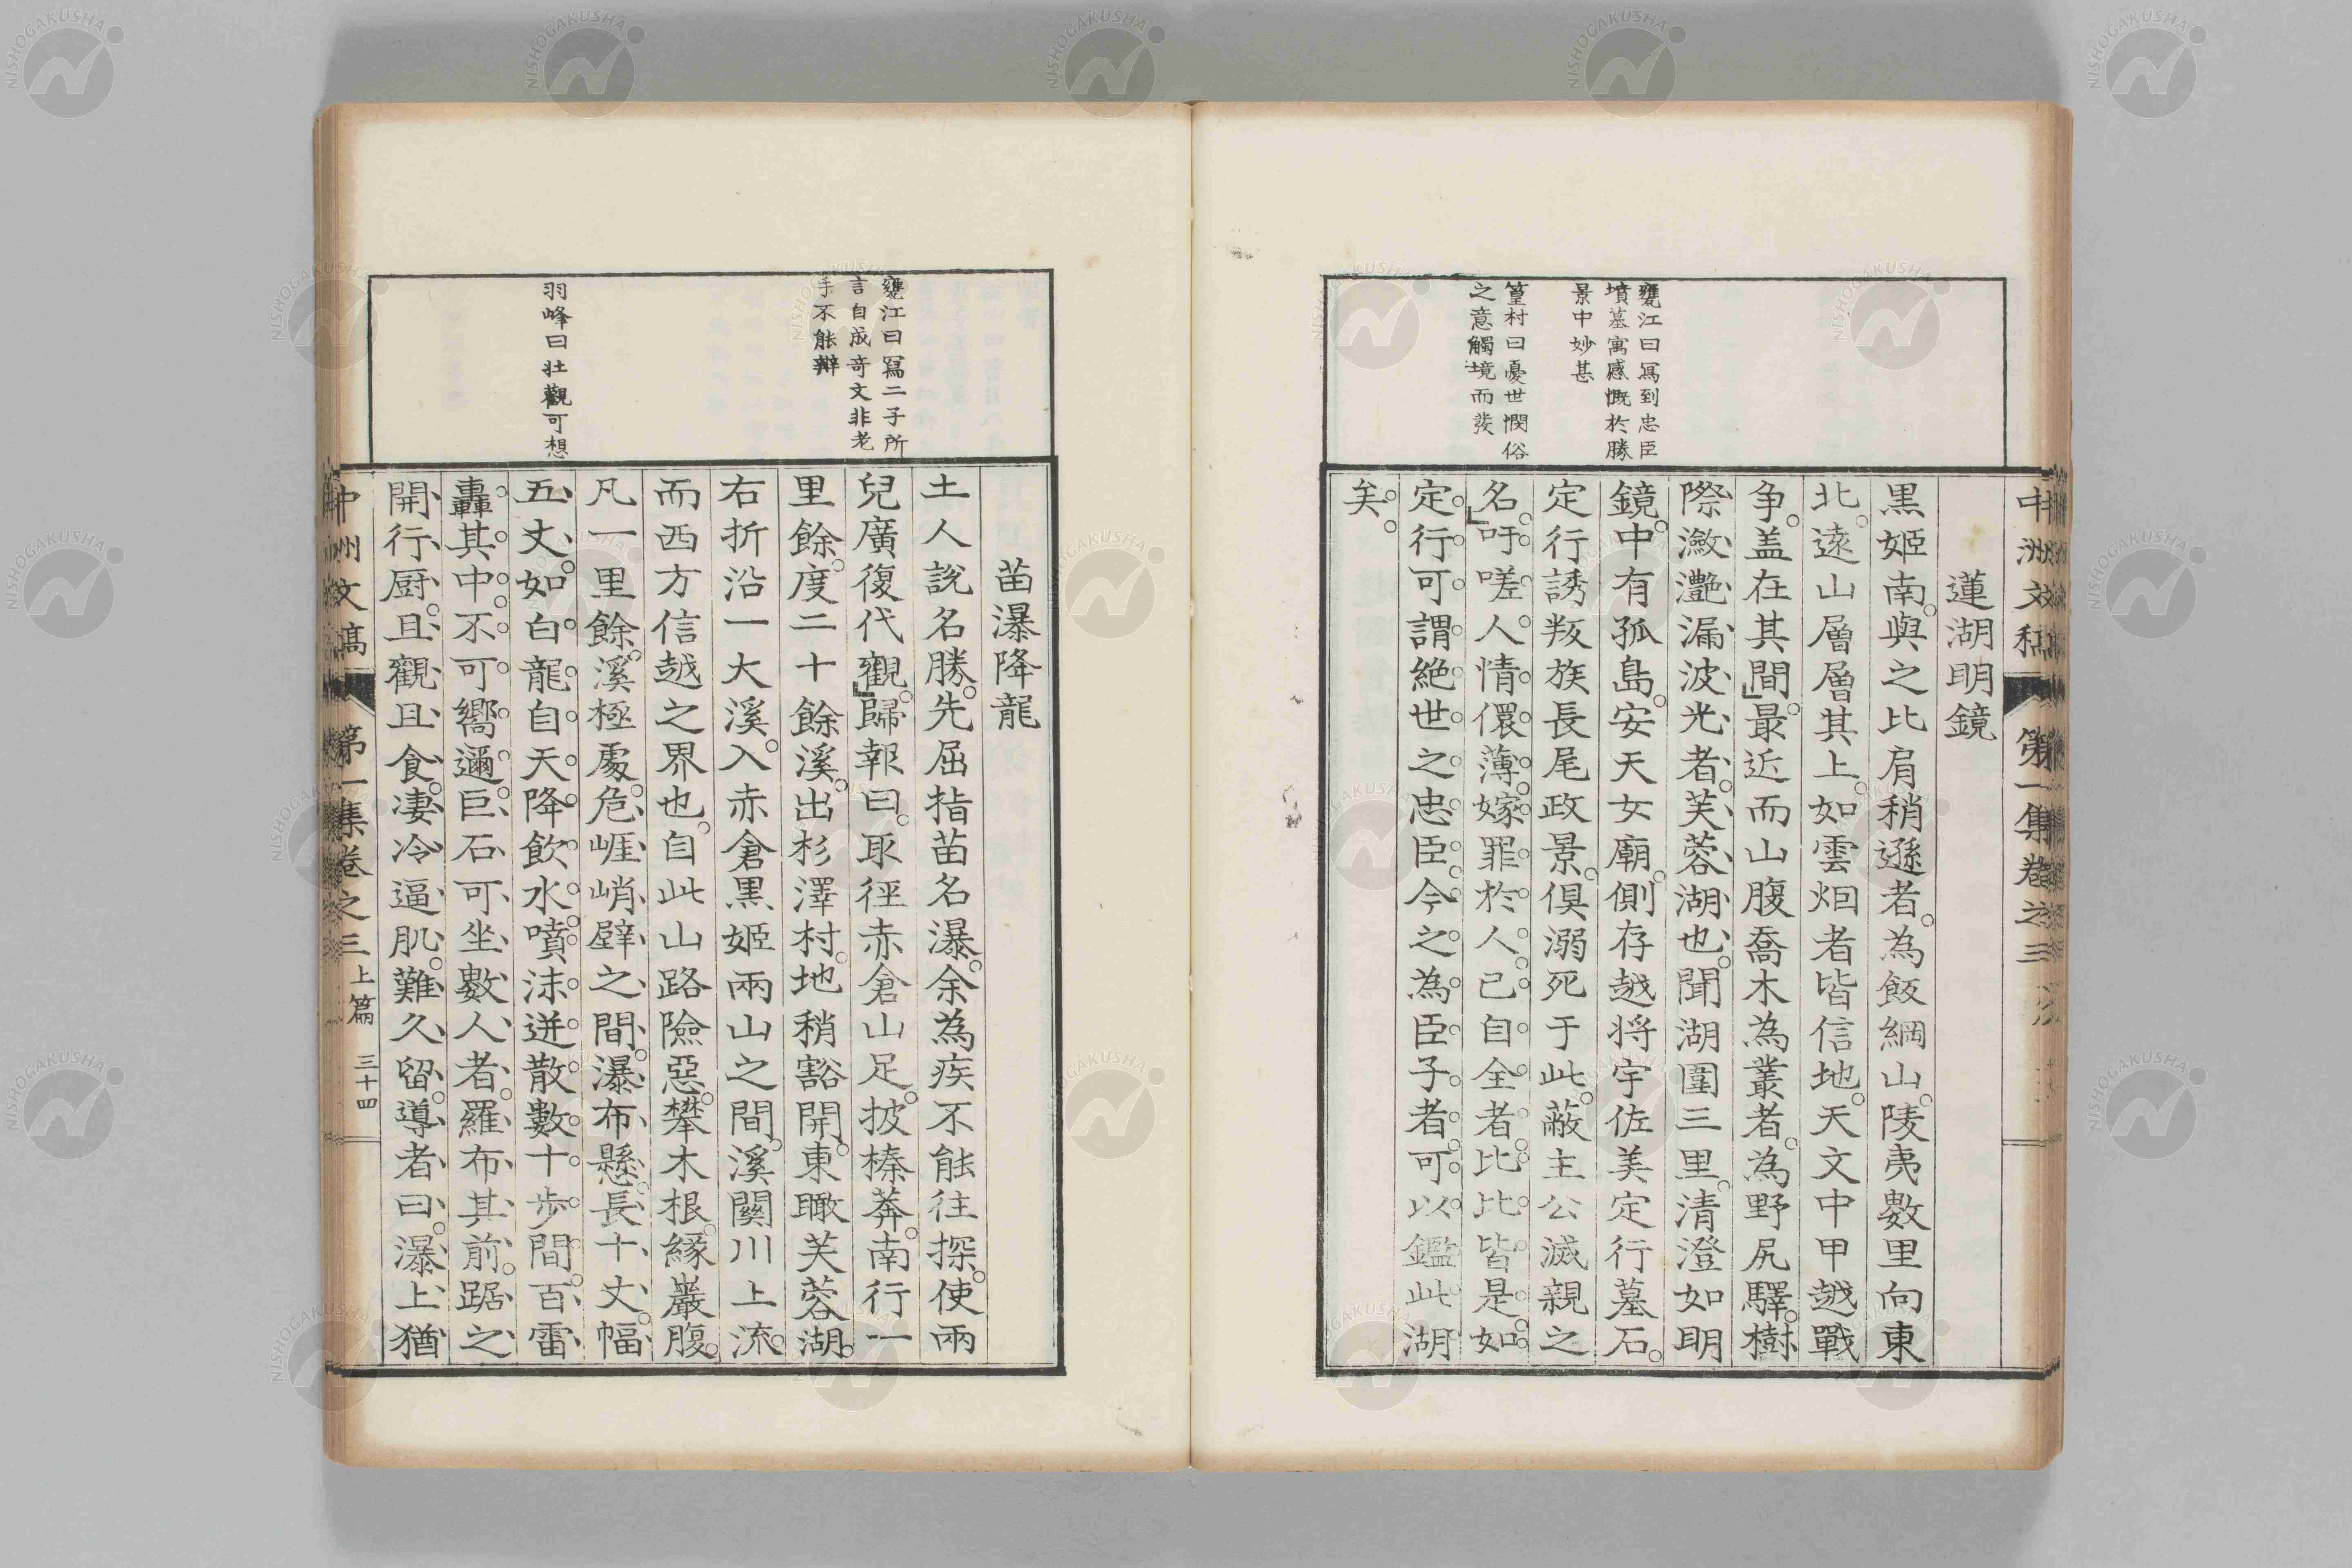 中洲文稿
第一集卷之三
甕江曰寫到忠臣
墳墓寓感慨於勝
景中妙甚
篁村曰憂世憫俗
之意觸境而發
蓮湖明鏡
黒姬南。與之比肩稍遜者。為飯綱山。陵夷數里向東
北。遠山層層其上。如雲烟者皆信地。天文中甲越戰
争。盖在其間」最近而山腹喬木為叢者。為野尻驛。樹
際瀲灔漏波光者。芙蓉湖也。聞湖圍三里。清澄如明
鏡。中有孤島。安天女廟。側存越将宇佐美定行墓石。
定行誘叛族長尾政景。俱溺死于此。蔽主公滅親之
名」吁嗟人情儇薄。嫁罪於人。己自全者。比比皆是。如
定行可謂絶世之忠臣。今之為臣子者。可以鑑此湖
矣。
甕江曰寫二子所
言自成奇文非老
手不能辯
羽峰曰壯觀可想
苗瀑降龍
土人說名勝。先屈指苗名瀑。余為疾不能往探。使兩
兒廣復代觀」歸報曰。取徑赤倉山足。披榛莽。南行一
里餘。度二十餘溪。出杉澤村。地稍豁開。東瞰芙蓉湖。
右折沿一大溪。入赤倉黒姬兩山之間。溪關川上流。
而西方信越之界也。自此山路險惡。攀木根。緣巖腹。
凡一里餘。溪極處。危崕峭壁之間。瀑布懸。長十丈。幅
五丈。如白龍自天降飲水。噴沫迸散數十步間。百雷
轟其中。不可嚮邇。巨石可坐數人者。羅布其前。踞之
開行厨。且觀且食。凄冷逼肌。難久留。導者曰。瀑上猶
中州文稿
第一集卷之三
上篇
三十四
NISHOGAKUSHA